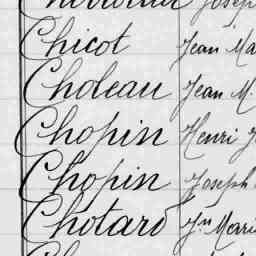 Chicot Jean Ma
Choleau Jean M.
Chopin Henri J
Chopin Joseph
Chotard Jn Marie